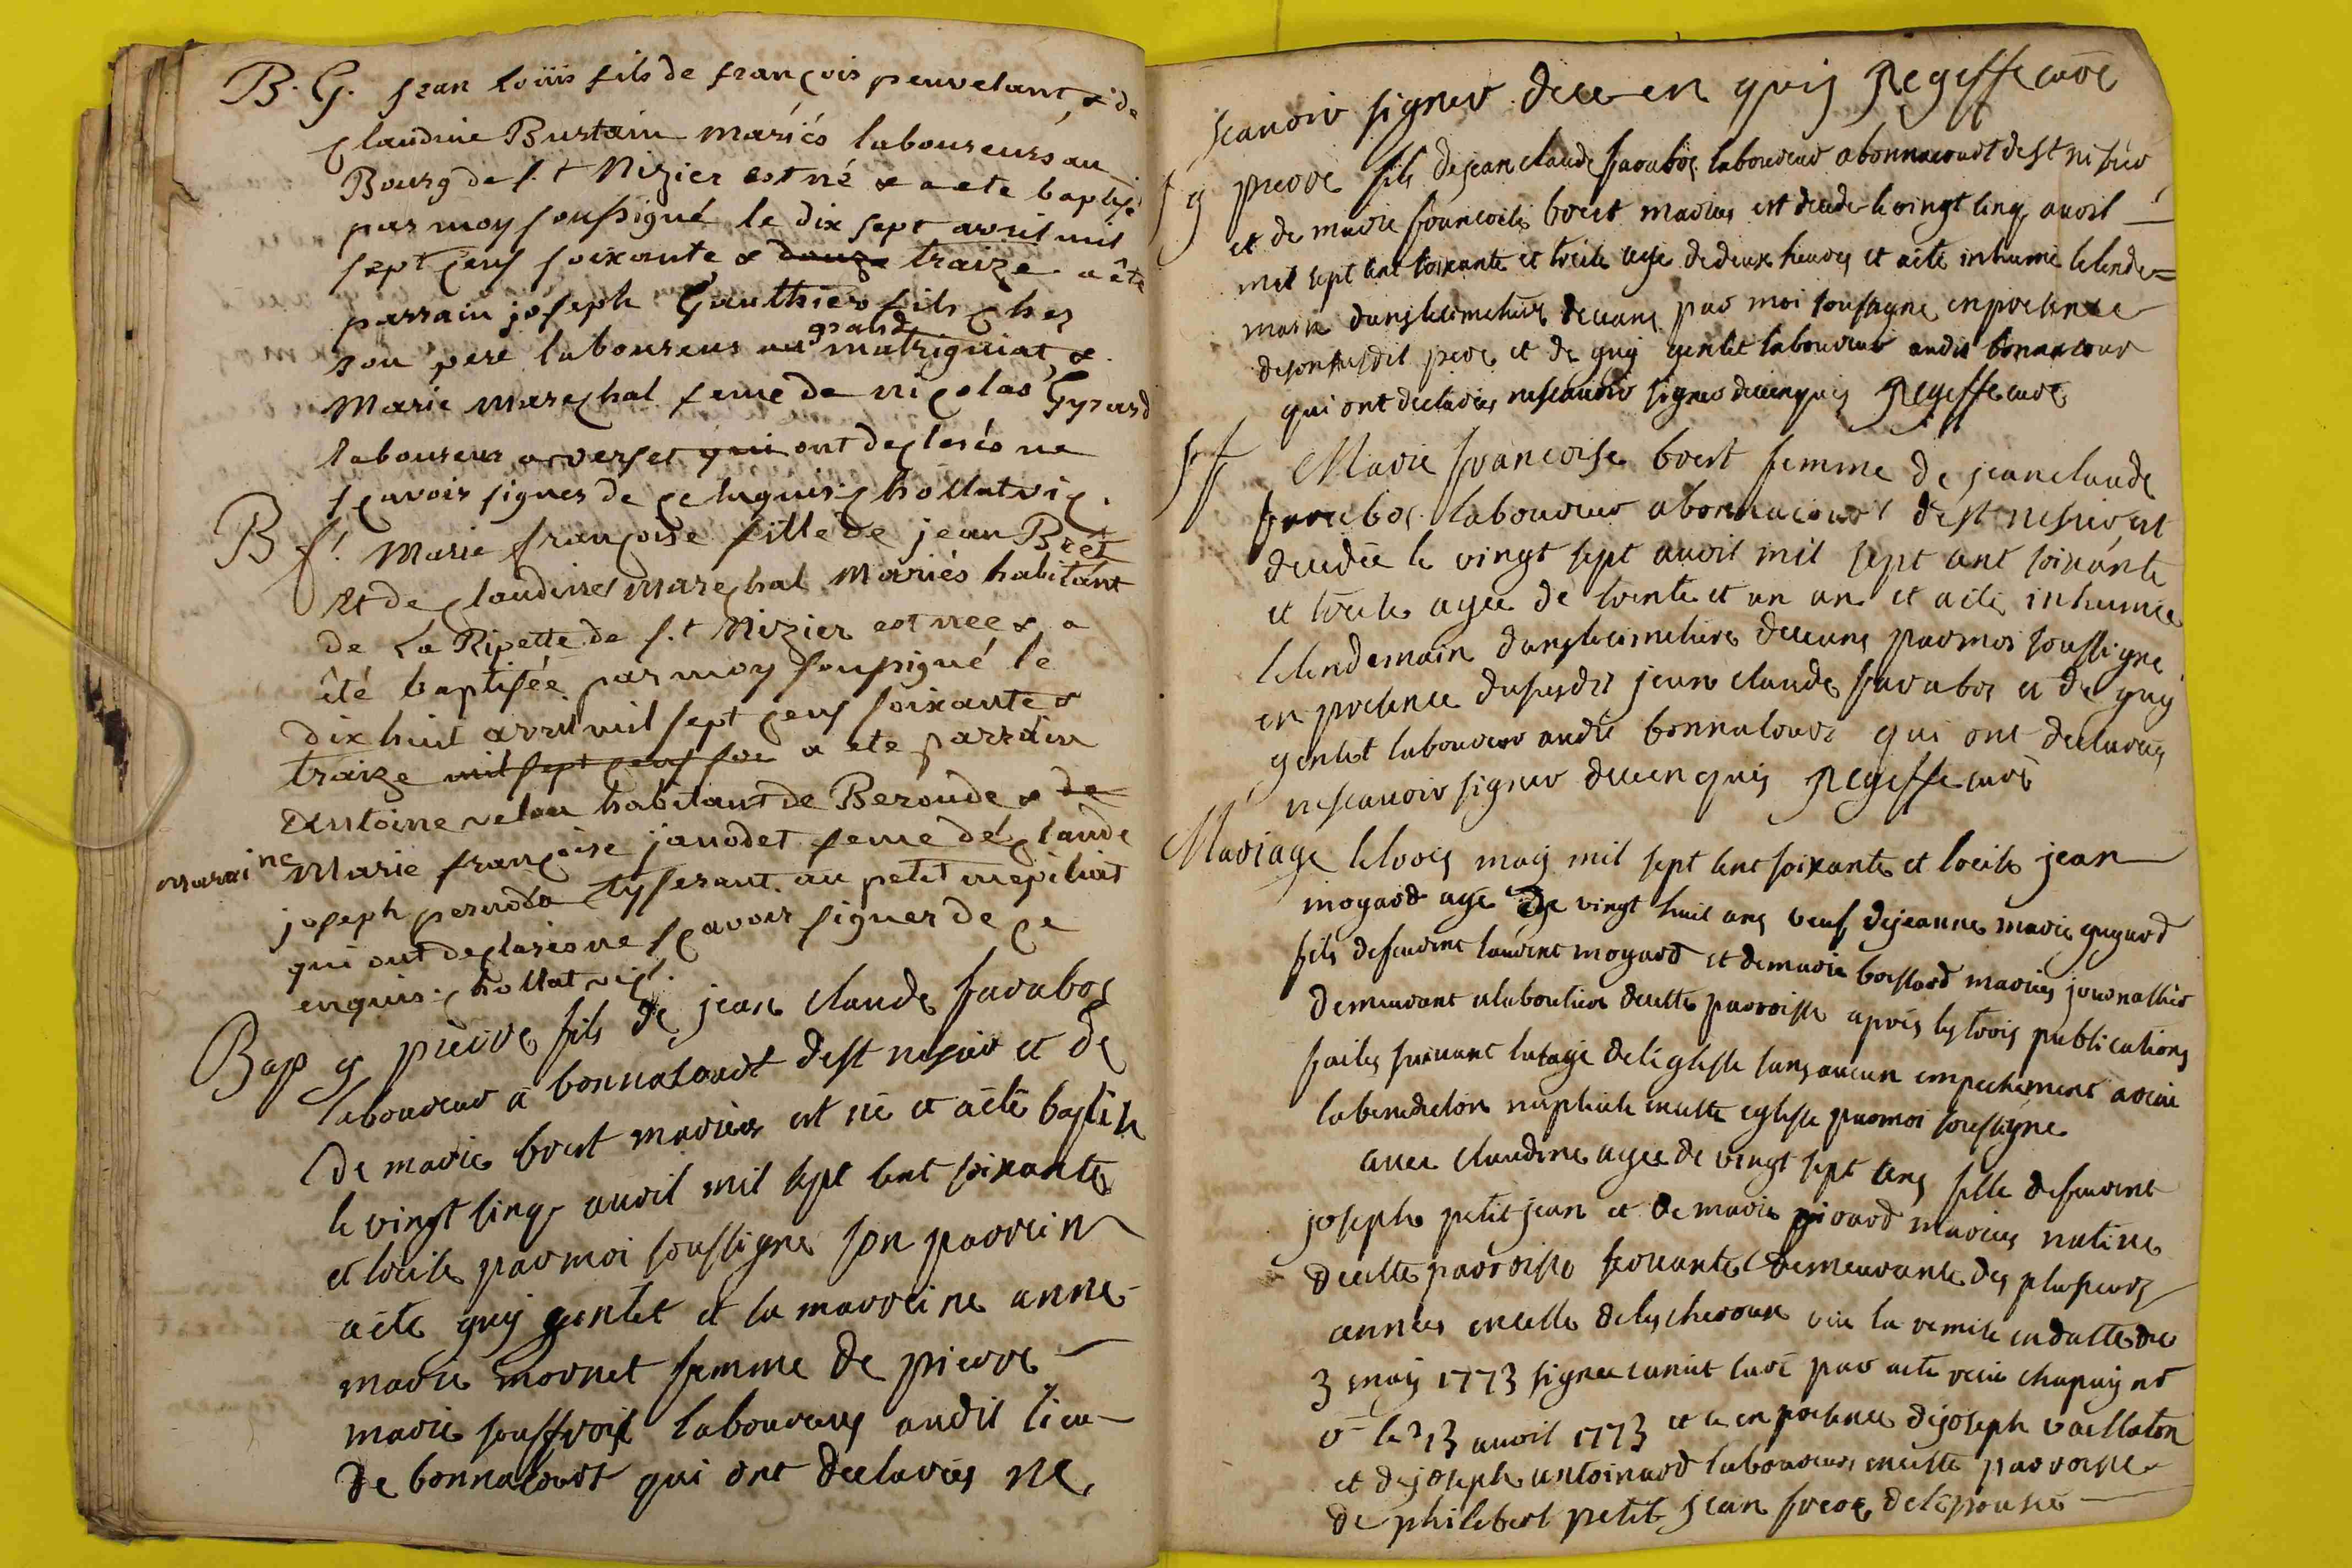 B. G. jean loüis fils de françois peuvelant, & de
claudine Burtain mariés laboureurs au
Bourg de s.t Nizier est né & a ete baptisé
par moy soussigné le dix sept avril mil
sept cens soixante & douze traize a été
parrain joseph Gauthier fils chez
son pere laboureur au grand matrigniat, &
Marie marechal feme de nicolas Gyrard
laboureur a verset qui ont declarés ne
scavoir signer de ce enquis. chollat vic.
B f. Marie françoise fille de jean Bret
Et de claudine marechal Mariés habitant
de La Ripette de s.t Nizier est nee & a
été baptisée par moy soussigné le
dix huit avril mil sept cens soixante &
traize mil sept cens soe a ete parrain
Antoine velon habitant de Beroude & de
maraine Marie françoise janodet feme de claude
joseph tyserant au petit
qui ont declarés ne scavoir signer de ce
enquis. chollat vic.
Bap g pierre fils de jean claude favabos
laboureur a bonnacourt de st nisier et de
de marie bret mariés est né et a eté baptisé
le vingt cinq avril mil sept cent soixante
et treise par moi soussigné son parrein
a eté guy gentet et la marreine anne
marie mornet femme de pierre
marie laboureurs audit lieu
de bonnacourt qui ont declarés ne
scauoir signer de ce en quis Regeffe curé
s g pierre fils de jean claude favabos laboureur a bonnacourt de st nisier
et de marie francoise bret mariés est decedé le vingt cinq avril
mil sept cent soixante et treise agé de deux heures et a eté inhumé le lende=
main dans le cimetiere de ceans par moi soussigné en presence
de son susdit pere et de guy gentet laboureur audit bonnacour
qui ont declarés ne scauoir signer de ce enquis Regeffe curé
s f Marie francoise bret femme de jean claude
favabos laboureur a bonnacourt de st nisier est
decedée le vingt sept avril mil sept cent soixante
et treise agée de trente et un an et a eté inhumée
le lendemain dans le cimetiere de ceans par moi soussigné
en presence du susdit jean claude favabos et de guy
gentet laboureur audit bonnacour qui ont declarés
ne scauoir signer de ce enquis Regeffe curé
Mariage le trois may mil sept cent soixante et treise jean
moyard agé de vingt huit ans veuf de jeanne marie guyard
fils de feu laurent moyard et de marie mariés journallier
demeurant a la boutiere de cette parroisse après les trois publications
faites suivant lusage de léglisse sans aucun empechement a reçu
la benediction nuptiale en cette eglisse par moi soussigné
avec claudine agée de vingt sept ans fille de feu
joseph petit jean et de marie pirard mariés native
de cette parroisse servante demeurante des plusieurs
années en celle de vu la remise en datte du
3 may 1773 signée curé par acte
le 13 avril 1773 et ce en presence de joseph vaillaton
et de joseph antoinard laboureurs en cette parroisse
de philibert petit jean frere de lépouse